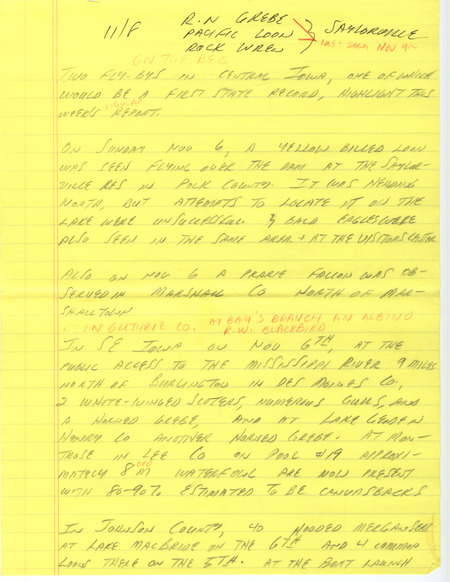 11/8 R.N GREBE
PACIFIC LOON } SAYLORVILLE
ROCK WREN last seen Nov 9th
ON THE REG
TWO FLY-BYS IN CENTRAL IOWA, ONE OF WHICH
WOULD BE A FIRST STATE RECORD, HIGHLIGHT THIS
WEEK'S REPORT.
ON SUNDAY NOV 6, A YELLOW BILLED LOON
WAS SEEN FLYING OVER THE DAM AT THE SAYLOR-
VILLE RES IN POLK COUNTY. IT WAS HEADING
NORTH, BUT ATTEMPTS TO LOCATE IT ON THE
LAKE WERE UNSUCCESSFUL 3 BALD EAGLES WERE
ALSO SEEN IN THE SAME AREA + AT THE VISITORS CENTER
ALSO ON NOV 6 A PRARIE FALCON WAS OB-
SERVED IN MARSHALL CO NORTH OF MAR-
SHALLTOWN
IN GUTHRIE CO. AT BAY'S BRANCH AN ALBINO
R.W. BLACKBIRD
IN SE IOWA ON NOV 6TH, AT THE
PUBLIC ACCESS TO THE MISSISSIPPI RIVER 9 MILES
NORTH OF BURLINGTON IN DES MOINES CO,
2 WHITE-WINGED SCOTERS, NUMEROUS GULLS, AND
A HORNED GREBE, AND AT LAKE GEODE IN
HENRY CO ANOTHER HORNED GREBE. AT MON-
TROSE IN LEE CO ON POOL #19 APPROXI-
MATELY 8 WATERFOWL ARE NOW PRESENT
WITH 80-90% ESTIMATED TO BE CANVASBACKS
IN JOHNSON COUNTY, 40 HOODED MERGANSERS
AT LAKE MACBRIDE ON THE 6TH AND 4 COMMON
LOONS THERE ON THE 5TH. AT THE BOAT LAUNCH